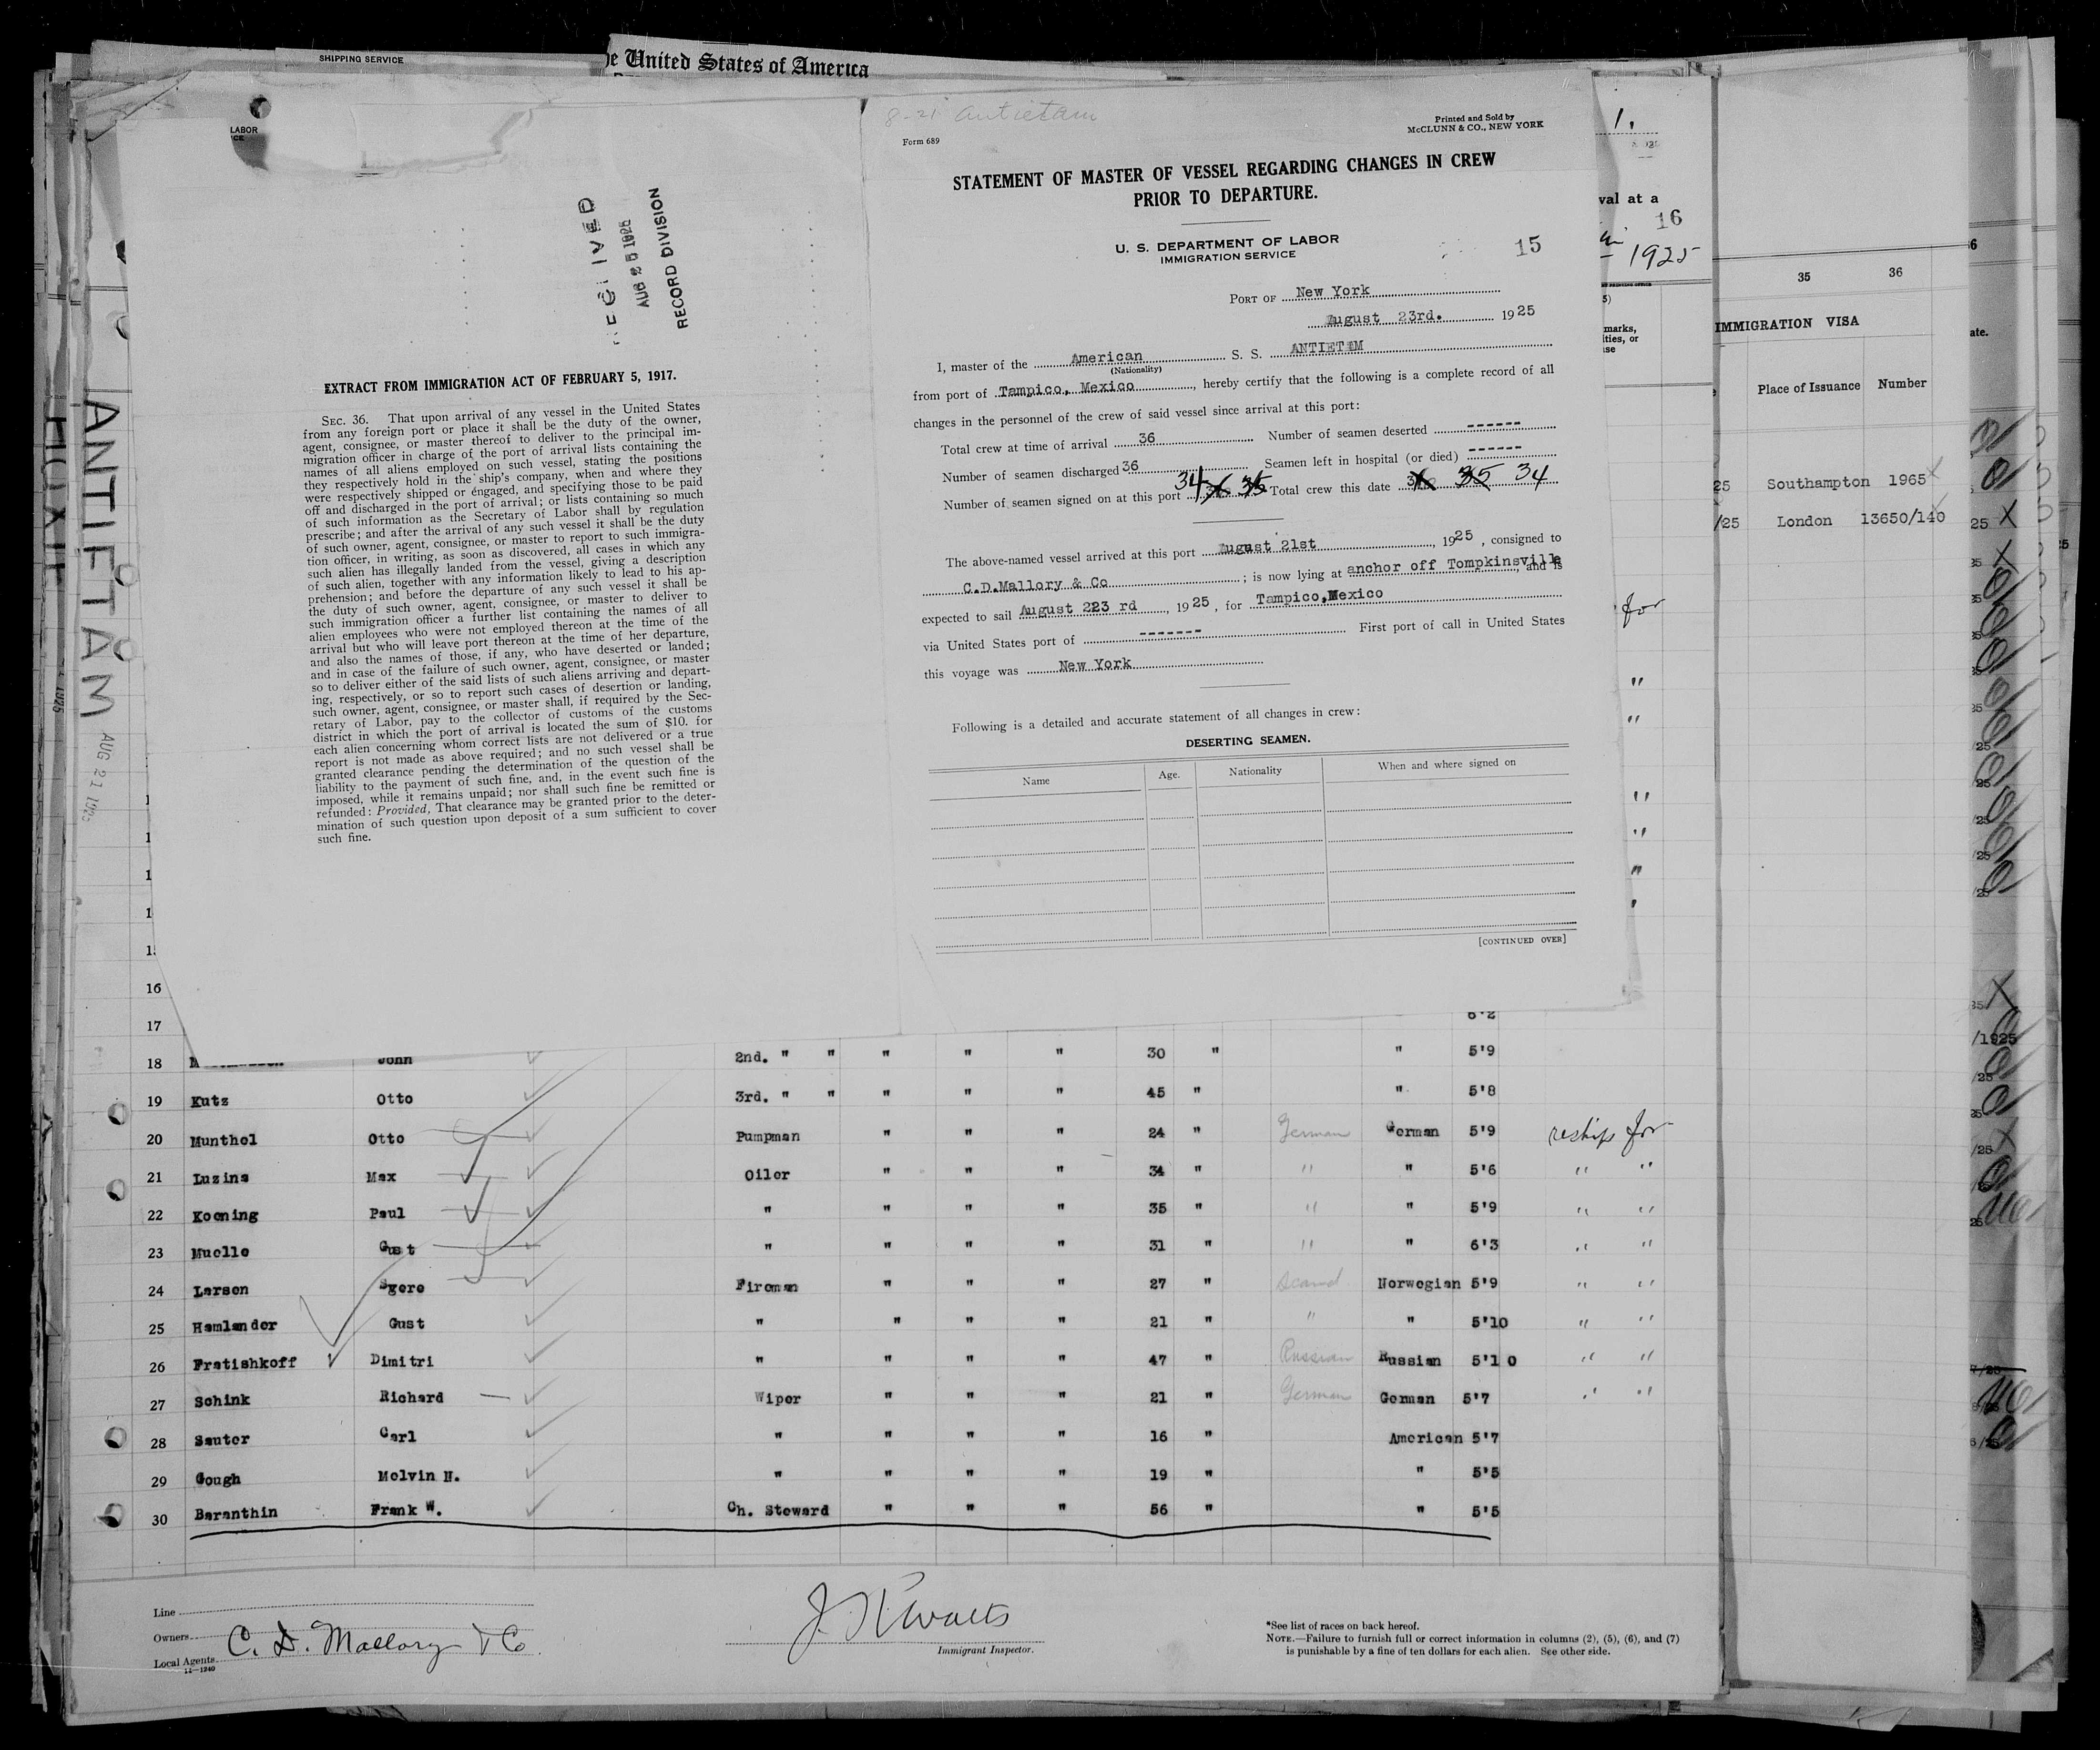 SHIPPING SERVICE
he United States of America
LABOR
8-21 Antietam
Form 689
Printed and Sold by
McCLUNN & CO., NEW YORK
STATEMENT OF MASTER OF VESSEL REGARDING CHANGES IN CREW
PRIOR TO DEPARTURE.
U. S. DEPARTMENT OF LABOR
IMMIGRATION SERVICE
15
PORT OF New York
August 23rd. 1925
I, master of the American S. S. ANTIETAM
(Nationality)
from port of Tampico, Mexico, hereby certify that the following is a complete record of all
changes in the personnel of the crew of said vessel since arrival at this port:
Total crew at time of arrival 36 Number of seamen deserted ------
Number of seamen discharged 36 Seamen left in hospital (or died) ------
Number of seamen signed on at this port 34 36 35 Total crew this date 36 35 34
The above-named vessel arrived at this port August 21st, 1925, consigned to
C.D.Mallory & Co; is now lying at anchor off Tompkinsville, and is
expected to sail August 223 rd, 1925, for Tampico,Mexico
via United States port of ------- First port of call in United States
this voyage was New York
Following is a detailed and accurate statement of all changes in crew:
DESERTING SEAMEN.
Name Age. Nationality When and where signed on
[CONTINUED OVER]
RECEIVED
AUG 25 1925
RECORD DIVISION
EXTRACT FROM IMMIGRATION ACT OF FEBRUARY 5, 1917.
SEC. 36. That upon arrival of any vessel in the United States
from any foreign port or place it shall be the duty of the owner,
agent, consignee, or master thereof to deliver to the principal im-
migration officer in charge of the port of arrival lists containing the
names of all aliens employed on such vessel, stating the positions
they respectively hold in the ship's company, when and where they
were respectively shipped or engaged, and specifying those to be paid
off and discharged in the port of arrival; or lists containing so much
of such information as the Secretary of Labor shall by regulation
prescribe; and after the arrival of any such vessel it shall be the duty
of such owner, agent, consignee, or master to report to such immigra-
tion officer, in writing, as soon as discovered, all cases in which any
such alien has illegally landed from the vessel, giving a description
of such alien, together with any information likely to lead to his ap-
prehension; and before the departure of any such vessel it shall be
the duty of such owner, agent, consignee, or master to deliver to
such immigration officer a further list containing the names of all
alien employees who were not employed thereon at the time of the
arrival but who will leave port thereon at the time of her departure,
and also the names of those, if any, who have deserted or landed;
and in case of the failure of such owner, agent, consignee, or master
so to deliver either of the said lists of such aliens arriving and depart-
ing, respectively, or so to report such cases of desertion or landing,
such owner, agent, consignee, or master shall, if required by the Sec-
retary of Labor, pay to the collector of customs of the customs
district in which the port of arrival is located the sum of $10. for
each alien concerning whom correct lists are not delivered or a true
report is not made as above required; and no such vessel shall be
granted clearance pending the determination of the question of the
liability to the payment of such fine, and, in the event such fine is
imposed, while it remains unpaid; nor shall such fine be remitted or
refunded: Provided, That clearance may be granted prior to the deter-
mination of such question upon deposit of a sum sufficient to cover
such fine.
ANTIETAM AUG 21 1925
1.
val at a
16
1925
marks,
ities, or
se
for
35 36
IMMIGRATION VISA
Place of Issuance Number
25 Southampton 1965
/25 London 13650/140
16
17 6'2
18 John 2nd. " " " " " 30 " " 5'9
19 Kutz Otto 3rd. " " " " " 45 " " 5'8
20 Munthol Otto Pumpman " " " 24 " German German 5'9 reships for
21 Luzins Max Oiler " " " 34 " " " 5'6 " "
22 Koening Paul " " " " 35 " " " 5'9 " "
23 Muelle Gust " " " " 31 " " " 6'3 " "
24 Larsen Sgere Fireman " " " 27 " Scand Norwegian 5'9 " "
25 Hamlander Gust " " " " 21 " " " 5'10 " "
26 Fratishkoff Dimitri " " " " 47 " Russian Russian 5'10 " "
27 Schink Richard Wiper " " " 21 " German German 5'7 " "
28 Sauter Carl " " " " 16 " American 5'7
29 Gough Melvin H. " " " " 19 " " 5'5
30 Baranthin Frank W. Ch. Steward " " " 56 " " 5'5
Line
Owners
Local Agents C. D. Mallory & Co.
14—1240
Immigrant Inspector.
*See list of races on back hereof.
NOTE.—Failure to furnish full or correct information in columns (2), (5), (6), and (7)
is punishable by a fine of ten dollars for each alien. See other side.